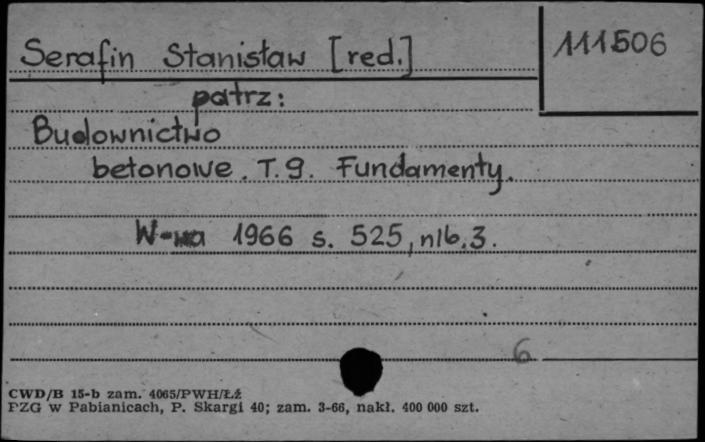 Serafin Stanisław [red.]
111506
patrz:
Budownictwo
betonowe. T. 9. Fundamenty.
W-wa 1966 s. 525, nlb. 3.
6
CWD/B 15-b zam. 4065/PWH/Łź
PZG w Pabianicach, P. Skargi 40; zam. 3-66, nakł. 400 000 szt.